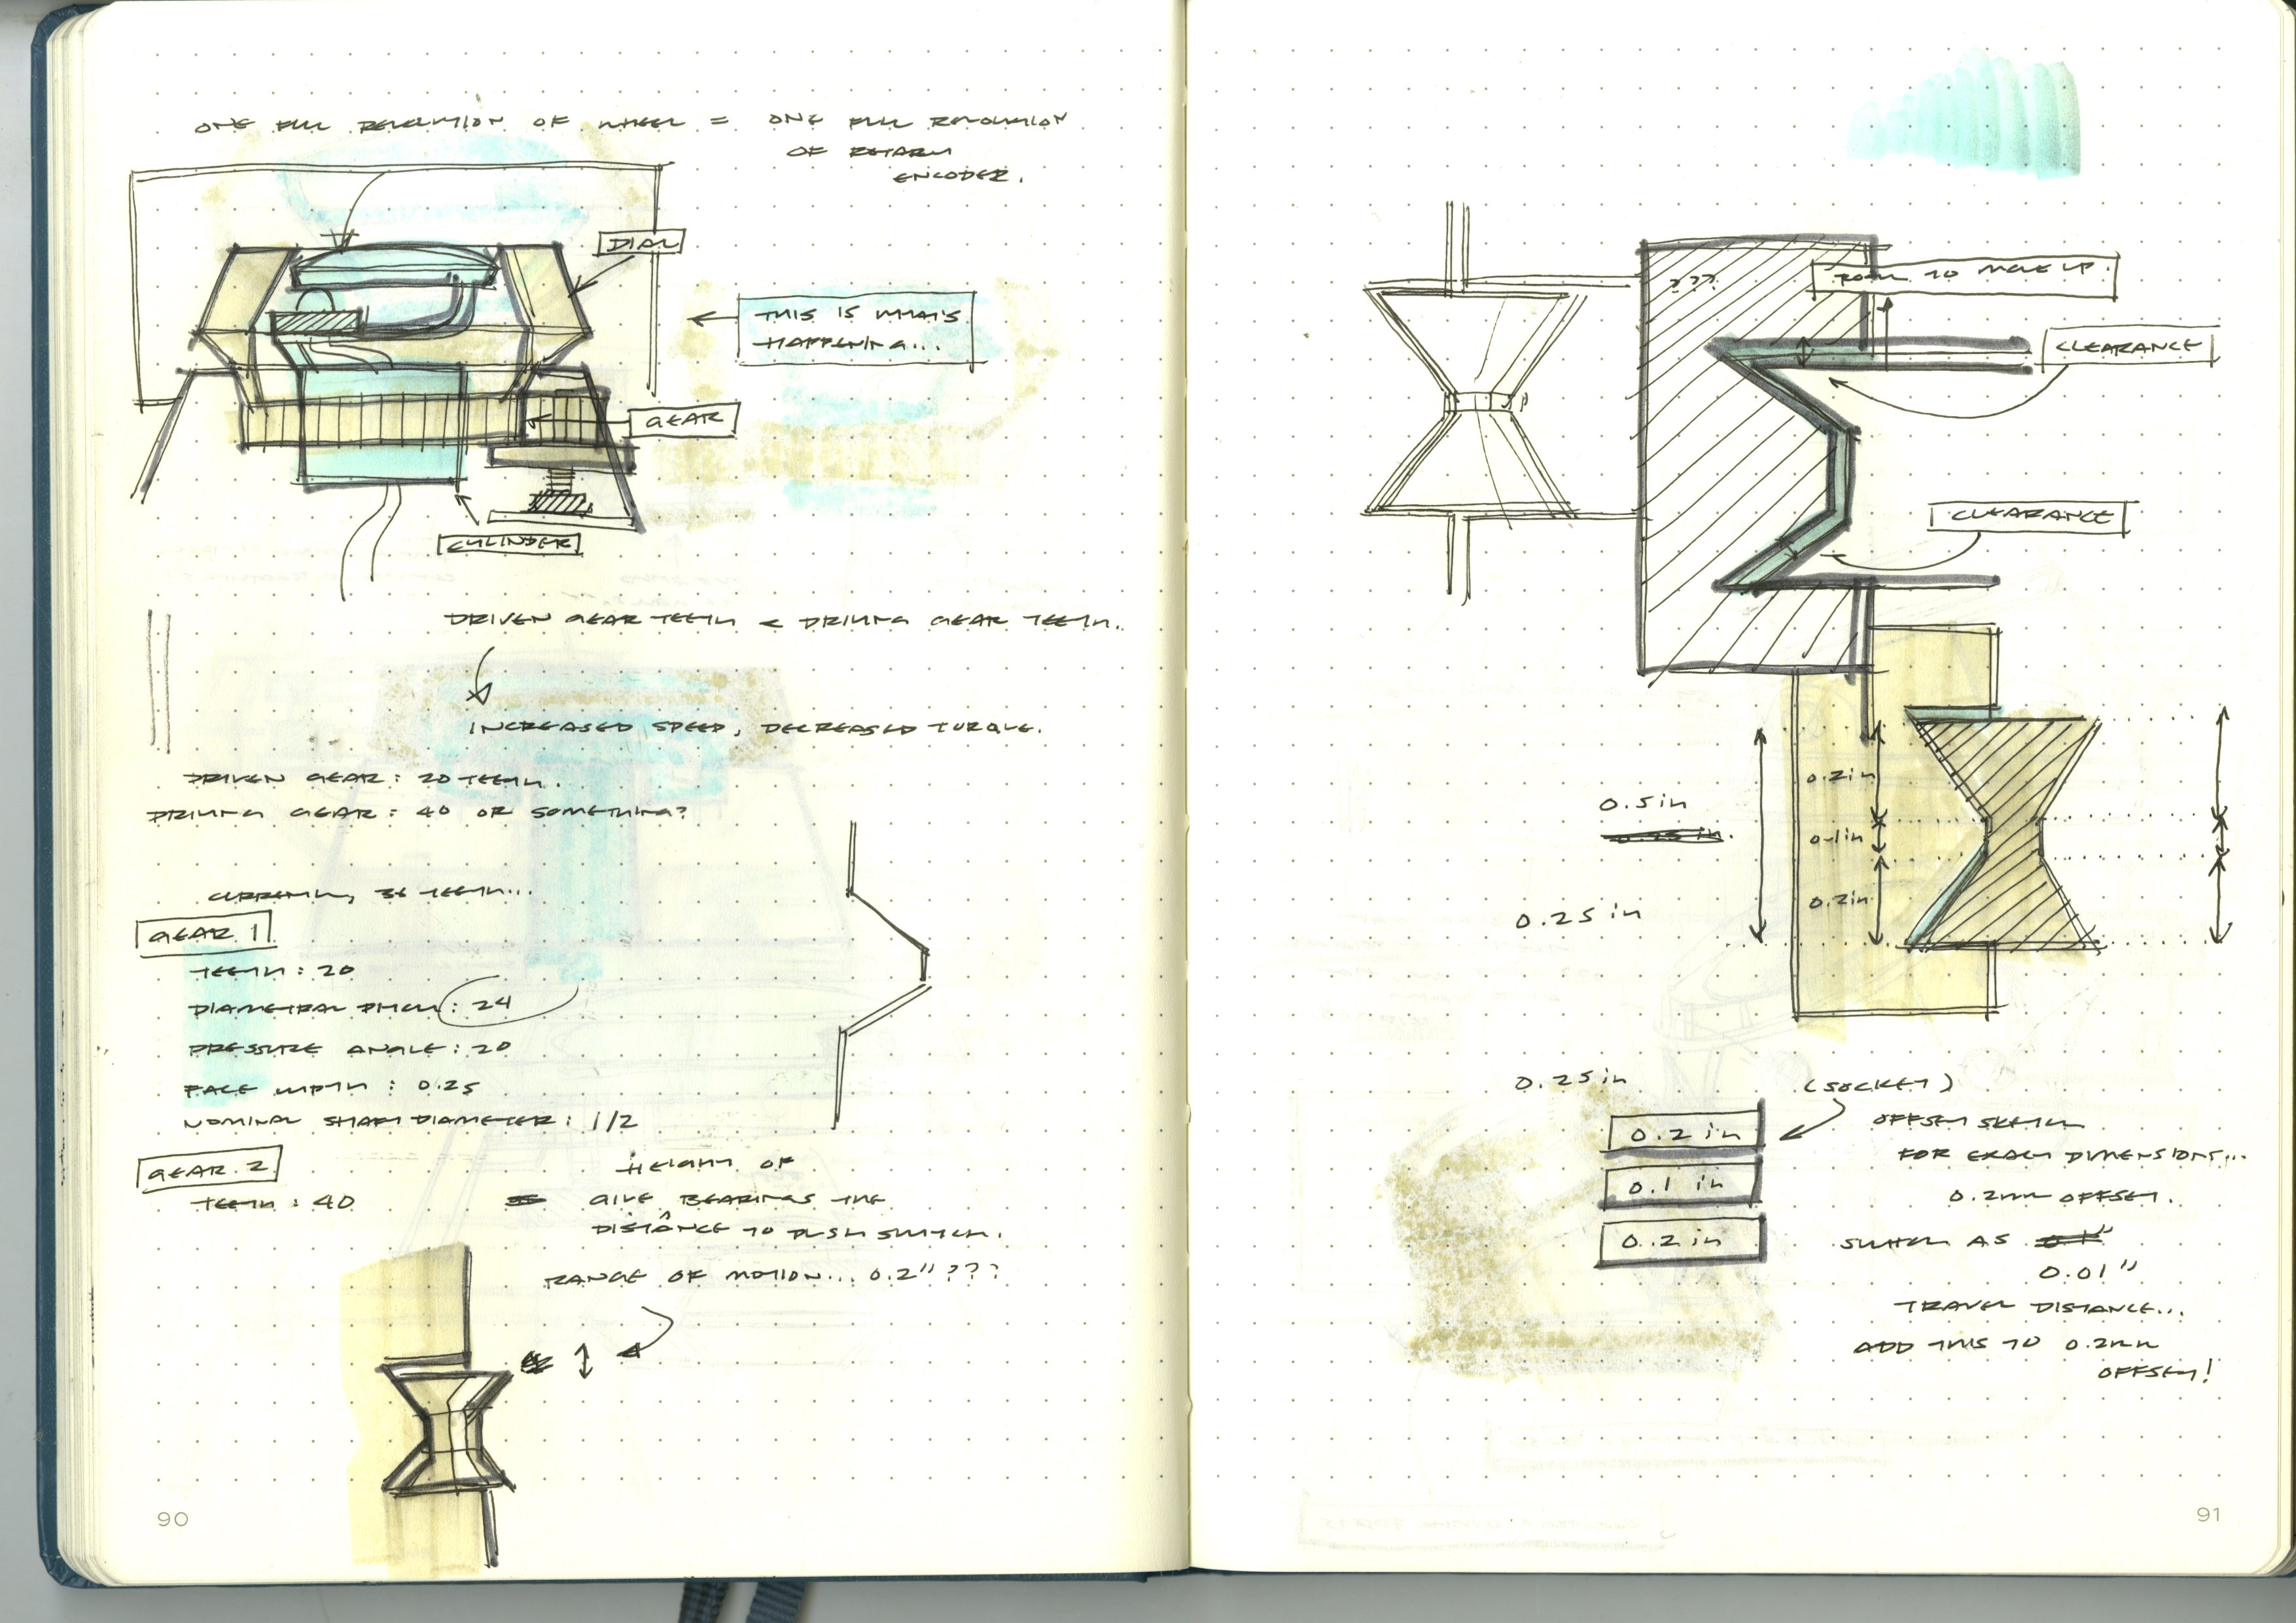 ONE FULL REVOLUTION OF WHEEL = ONE FULL REVOLUTION
OF ROTARY
ENCODER.
DIAL
THIS IS WHAT'S
HAPPENING...
GEAR
CYLINDER
DRIVEN GEAR TEETH < DRIVING GEAR TEETH.
INCREASED SPEED, DECREASED TORQUE.
DRIVEN GEAR: 20 TEETH.
DRIVING GEAR: 40 OR SOMETHING?
CURRENTLY, 36 TEETH...
GEAR 1
TEETH: 20
DIAMETRAL PITCH: 24
PRESSURE ANGLE: 20
FACE WIDTH: 0.25
NOMINAL SHAFT DIAMETER: 1/2
GEAR 2
TEETH: 40
HEIGHT OF
GIVE BEARINGS THE
DISTANCE TO PUSH SWITCH.
RANGE OF MOTION... 0.2" ???
90
???
ROOM TO MOVE UP.
CLEARANCE
CLEARANCE
0.2in
0.5in
0.1in
0.2in
0.25 in
0.25in
(SOCKET)
0.2 in
OFFSET SKETCH
FOR EXACT DIMENSIONS...
0.1 in
0.2mm OFFSET.
0.2 in
SWITCH AS
0.01"
TRAVEL DISTANCE...
ADD THIS TO 0.2mm
OFFSET!
91